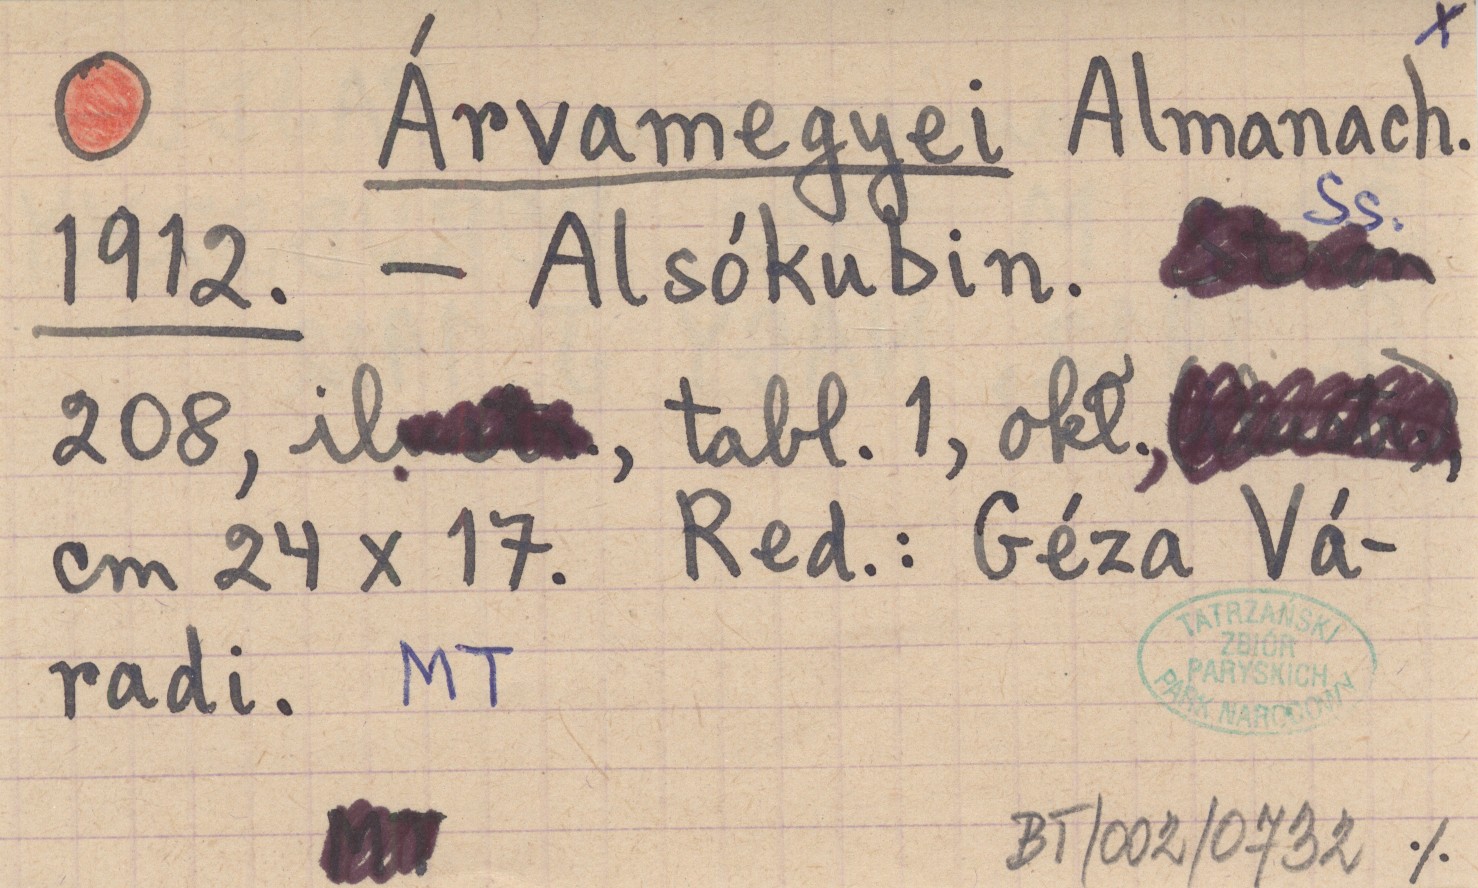 x
Árvamegyei Almanach.
1912. – Alsókubin. Ss.
208, il., tabl. 1, okł.,
cm 24 x 17. Red.: Géza Vá-
radi. MT
TATRZAŃSKI
ZBIÓR
PARYSKICH
PARK NARODOWY
BT/002/0732 ./.